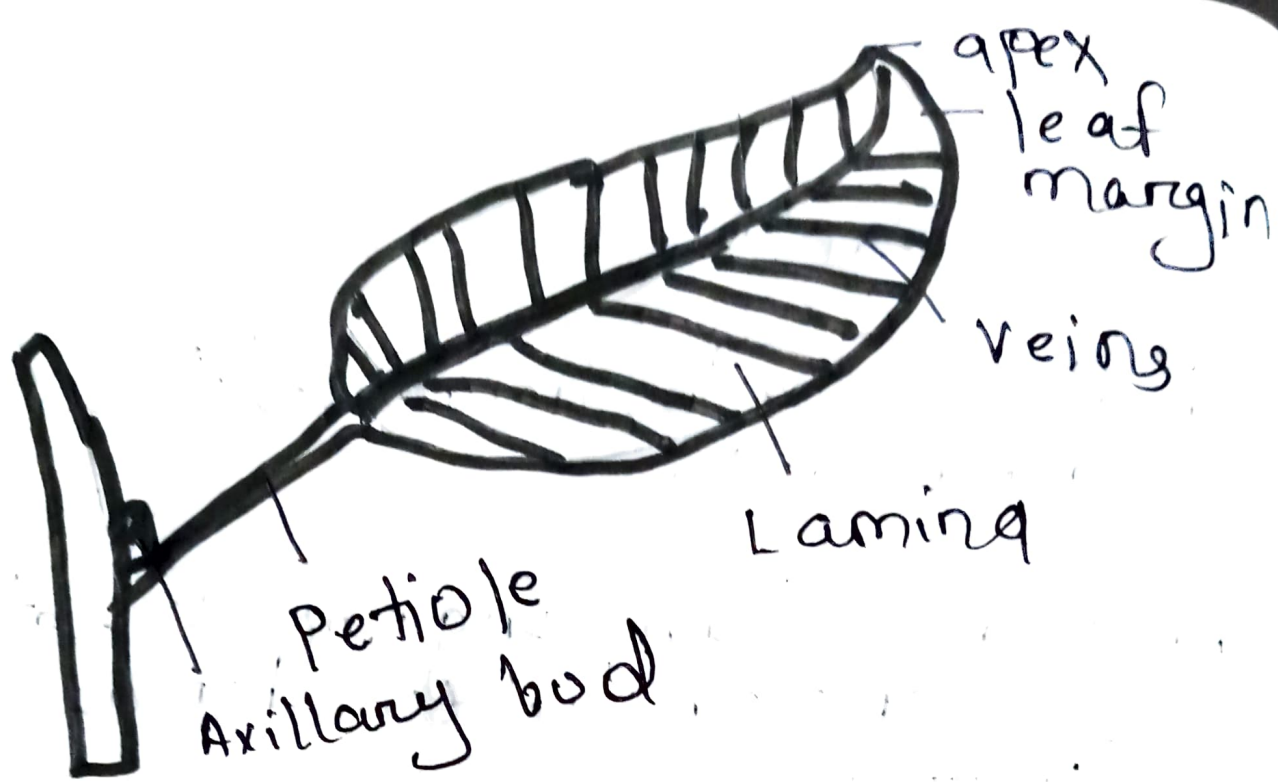 apex
leaf
margin
Veins
Lamina
Petiole
Axillary bud